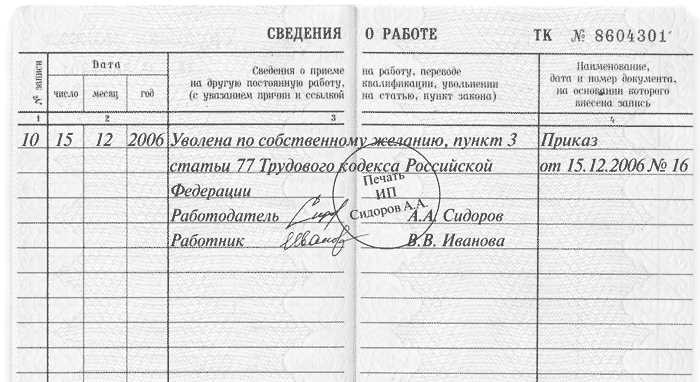 СВЕДЕНИЯ О РАБОТЕ ТК № 8604301
№ записи
Дата
число месяц год
Сведения о приеме на работу, переводе
на другую постоянную работу, квалификации, увольнении
(с указанием причин и ссылкой на статью, пункт закона)
Наименование,
дата и номер документа,
на основании которого
внесена запись
1 2 3 4
10 15 12 2006 Уволена по собственному желанию, пункт 3 Приказ
статьи 77 Трудового кодекса Российской от 15.12.2006 № 16
Федерации
Печать
ИП
Сидоров А.А.
Работодатель Сидр А.А. Сидоров
Работник Иванова В.В. Иванова